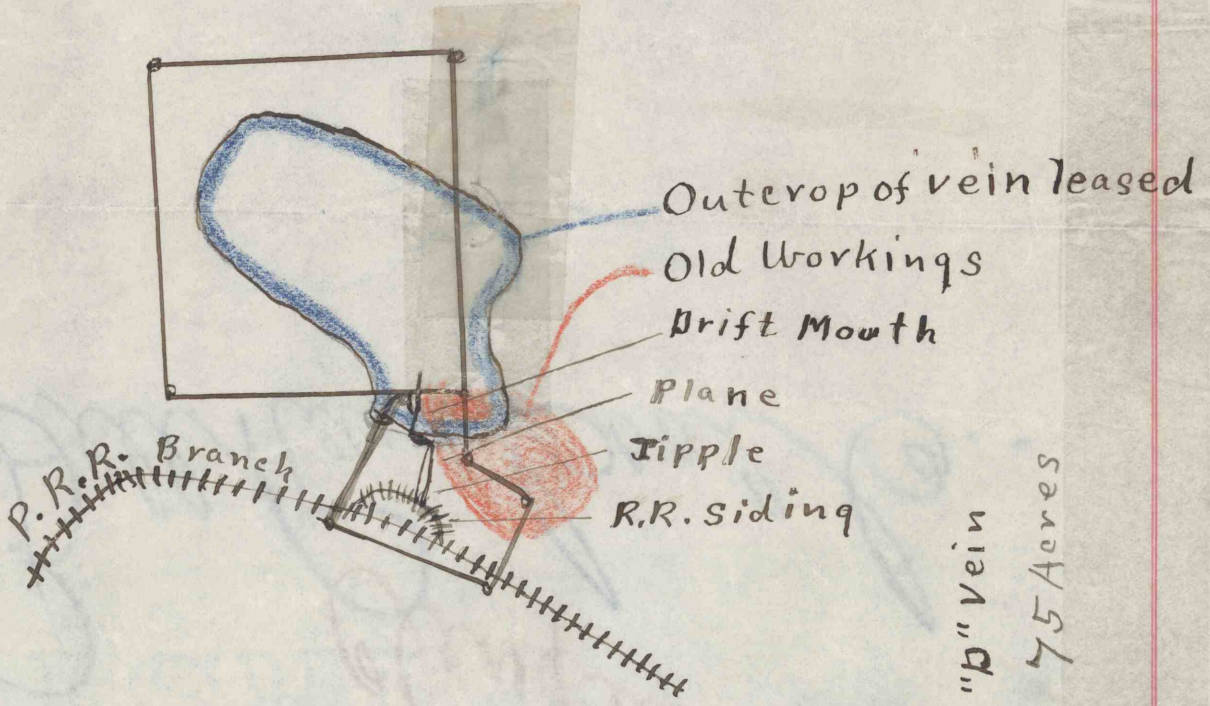 Outcrop of vein leased
Old Workings
Drift Mouth
Plane
Tipple
R.R. Siding
P.R.R. Branch
"D" Vein
75 Acres